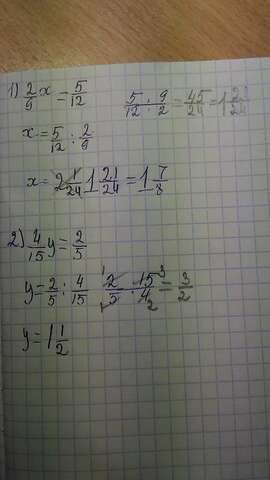 1) 2/9 x = 5/12   5/12 : 9/2 = 45/24 = 1 21/24
x = 5/12 : 2/9
x = 1 21/24 = 1 7/8
2) 4/15 y = 2/5
y = 2/5 : 4/15   2/5 · 15/4 = 3/2
y = 1 1/2